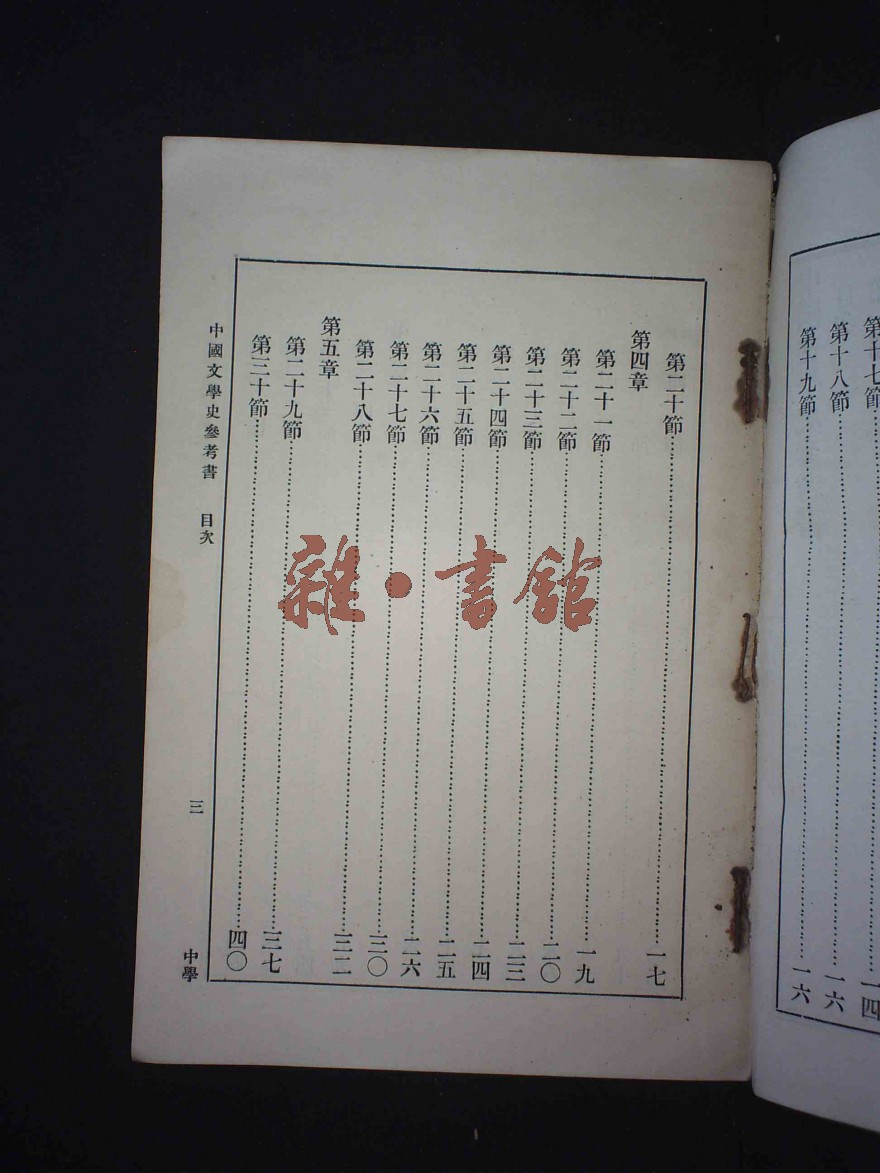 第十七節……一四
第十八節……一六
第十九節……一六
第二十節……一七
第四章
第二十一節……一九
第二十二節……二〇
第二十三節……二三
第二十四節……二四
第二十五節……二五
第二十六節……二六
第二十七節……三〇
第二十八節……三二
第五章
第二十九節……三七
第三十節……四〇
中國文學史參考書 目次 三 中學
雜·書館